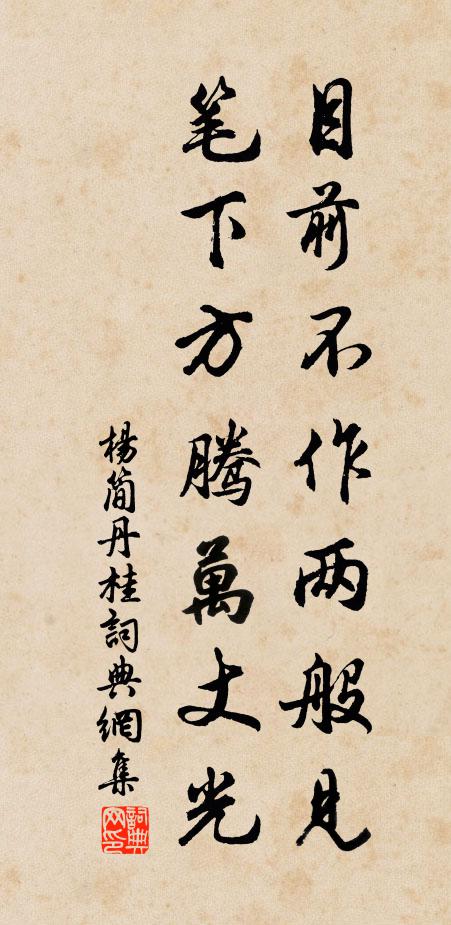 目前不作两般見
笔下方騰萬丈光
楊简丹桂詞典網集
詞典网印